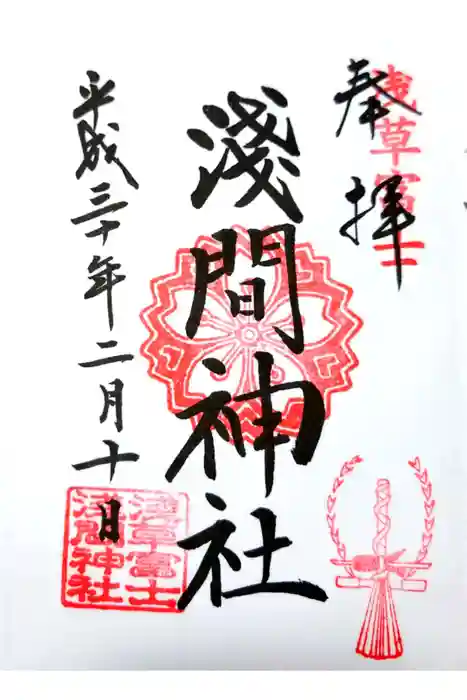 奉拝
浅草富士
淺間神社
平成三十年二月十日
浅草富士
浅間神社